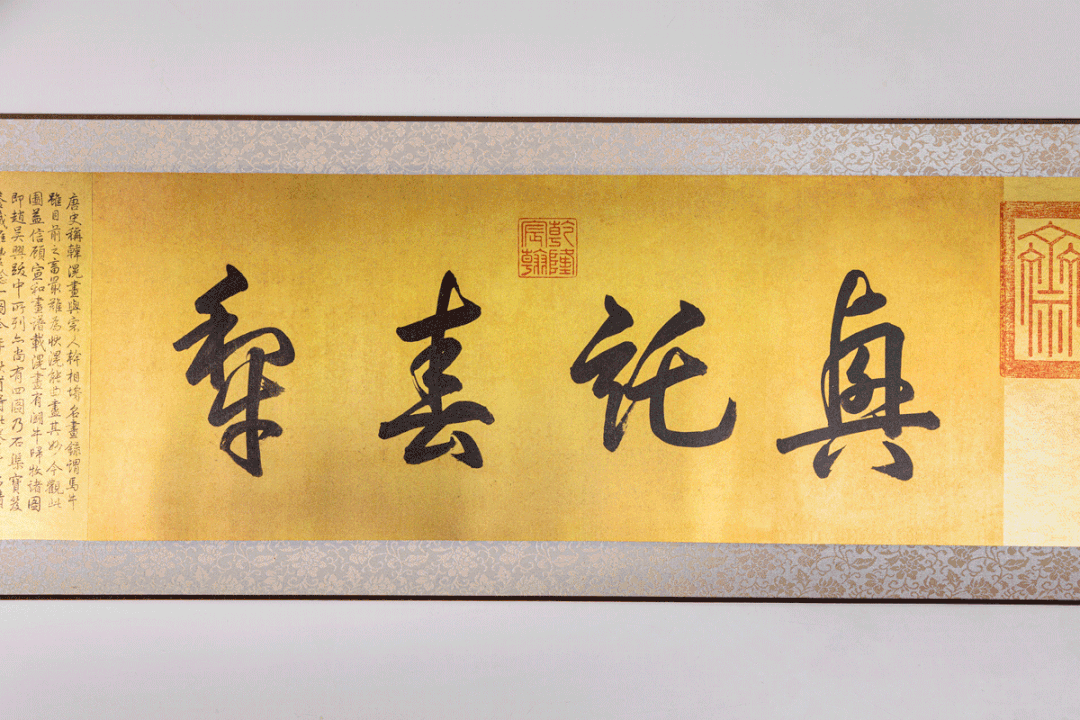 興託春犁
乾隆宸翰
唐史稱韓滉畫與宗人幹相埒名畫錄謂馬牛
雖目前之畜最難為狀滉能曲盡其妙今觀此
圖益信顧宣和畫譜載滉畫有鬭牛歸牧諸圖
即趙吳興跋中所列亦尚有四圖乃石渠寶笈